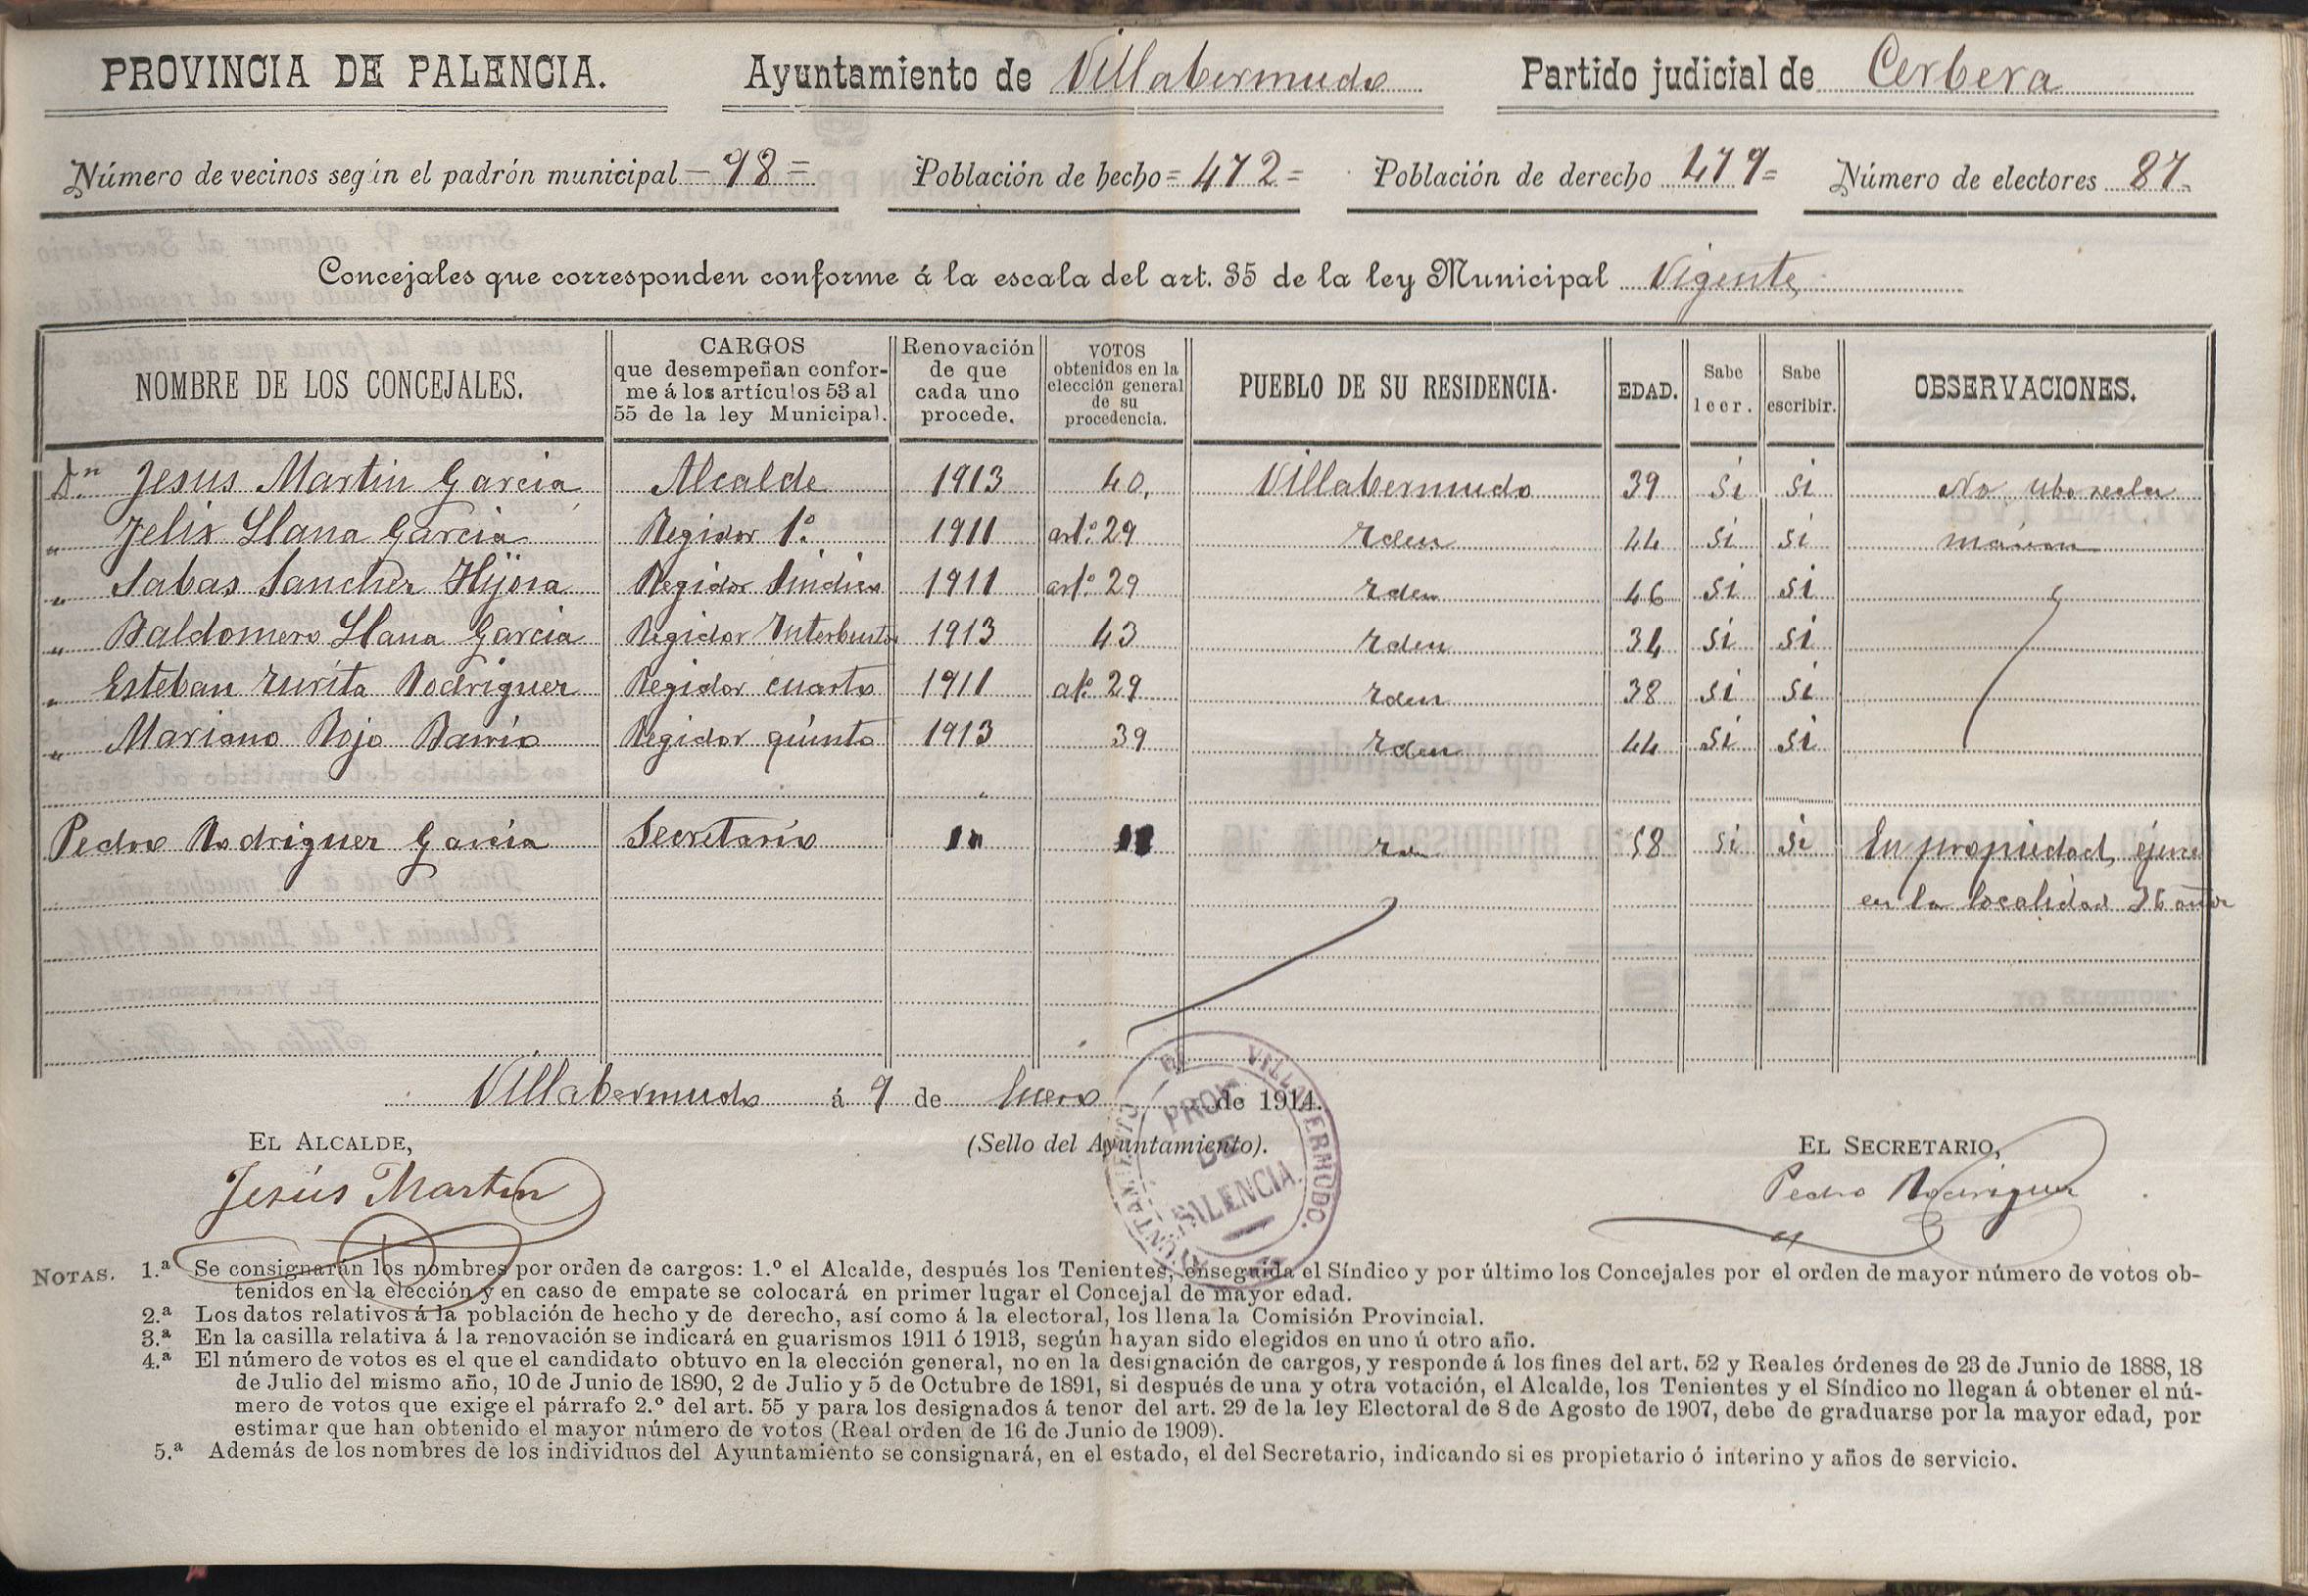 PROVINCIA DE PALENCIA. Ayuntamiento de Villabermudo Partido judicial de Cerbera
Número de vecinos según el padrón municipal - 98 = Población de hecho = 472 = Población de derecho 479 = Número de electores 87.
Concejales que corresponden conforme á la escala del art. 35 de la ley Municipal Vigente
NOMBRE DE LOS CONCEJALES. CARGOS que desempeñan conforme á los artículos 53 al 55 de la ley Municipal. Renovación de que cada uno procede. VOTOS obtenidos en la elección general de su procedencia. PUEBLO DE SU RESIDENCIA. EDAD. Sabe leer. Sabe escribir. OBSERVACIONES.
Dn. Jesus Martin Garcia Alcalde 1913 40, Villabermudo 39 si si No ubo recla
" Felix Llana Garcia Regidor 1º 1911 art.º 29 Yden 44 si si
" Sabas Sanchez Hijosa Regidor Sindico 1911 art.º 29 Yden 46 si si
" Baldomero Llana Garcia Regidor Ynterbentor 1913 43 Yden 34 si si
" Esteban Zurita Rodriguez Regidor cuarto 1911 at.º 29 Yden 38 si si
" Mariano Rojo Barrio Regidor quinto 1913 39 Yden 44 si si
Pedro Rodriguez Garcia Secretario " " 58 si si En propiedad, ejerce
en la localidad 26 años
Villabermudo á 9 de Enero de 1914.
EL ALCALDE, (Sello del Ayuntamiento). EL SECRETARIO,
Jesús Martin Pedro Rodriguez
AYUNTAMIENTO DE VILLABERMUDO.
PROV. DE PALENCIA
NOTAS. 1.ª Se consignarán los nombres por orden de cargos: 1.º el Alcalde, después los Tenientes, enseguida el Síndico y por último los Concejales por el orden de mayor número de votos ob-
tenidos en la elección y en caso de empate se colocará en primer lugar el Concejal de mayor edad.
2.ª Los datos relativos á la población de hecho y de derecho, así como á la electoral, los llena la Comisión Provincial.
3.ª En la casilla relativa á la renovación se indicará en guarismos 1911 ó 1913, según hayan sido elegidos en uno ú otro año.
4.ª El número de votos es el que el candidato obtuvo en la elección general, no en la designación de cargos, y responde á los fines del art. 52 y Reales órdenes de 23 de Junio de 1888, 18
de Julio del mismo año, 10 de Junio de 1890, 2 de Julio y 5 de Octubre de 1891, si después de una y otra votación, el Alcalde, los Tenientes y el Síndico no llegan á obtener el nú-
mero de votos que exige el párrafo 2.º del art. 55 y para los designados á tenor del art. 29 de la ley Electoral de 8 de Agosto de 1907, debe de graduarse por la mayor edad, por
estimar que han obtenido el mayor número de votos (Real orden de 16 de Junio de 1909).
5.ª Además de los nombres de los individuos del Ayuntamiento se consignará, en el estado, el del Secretario, indicando si es propietario ó interino y años de servicio.